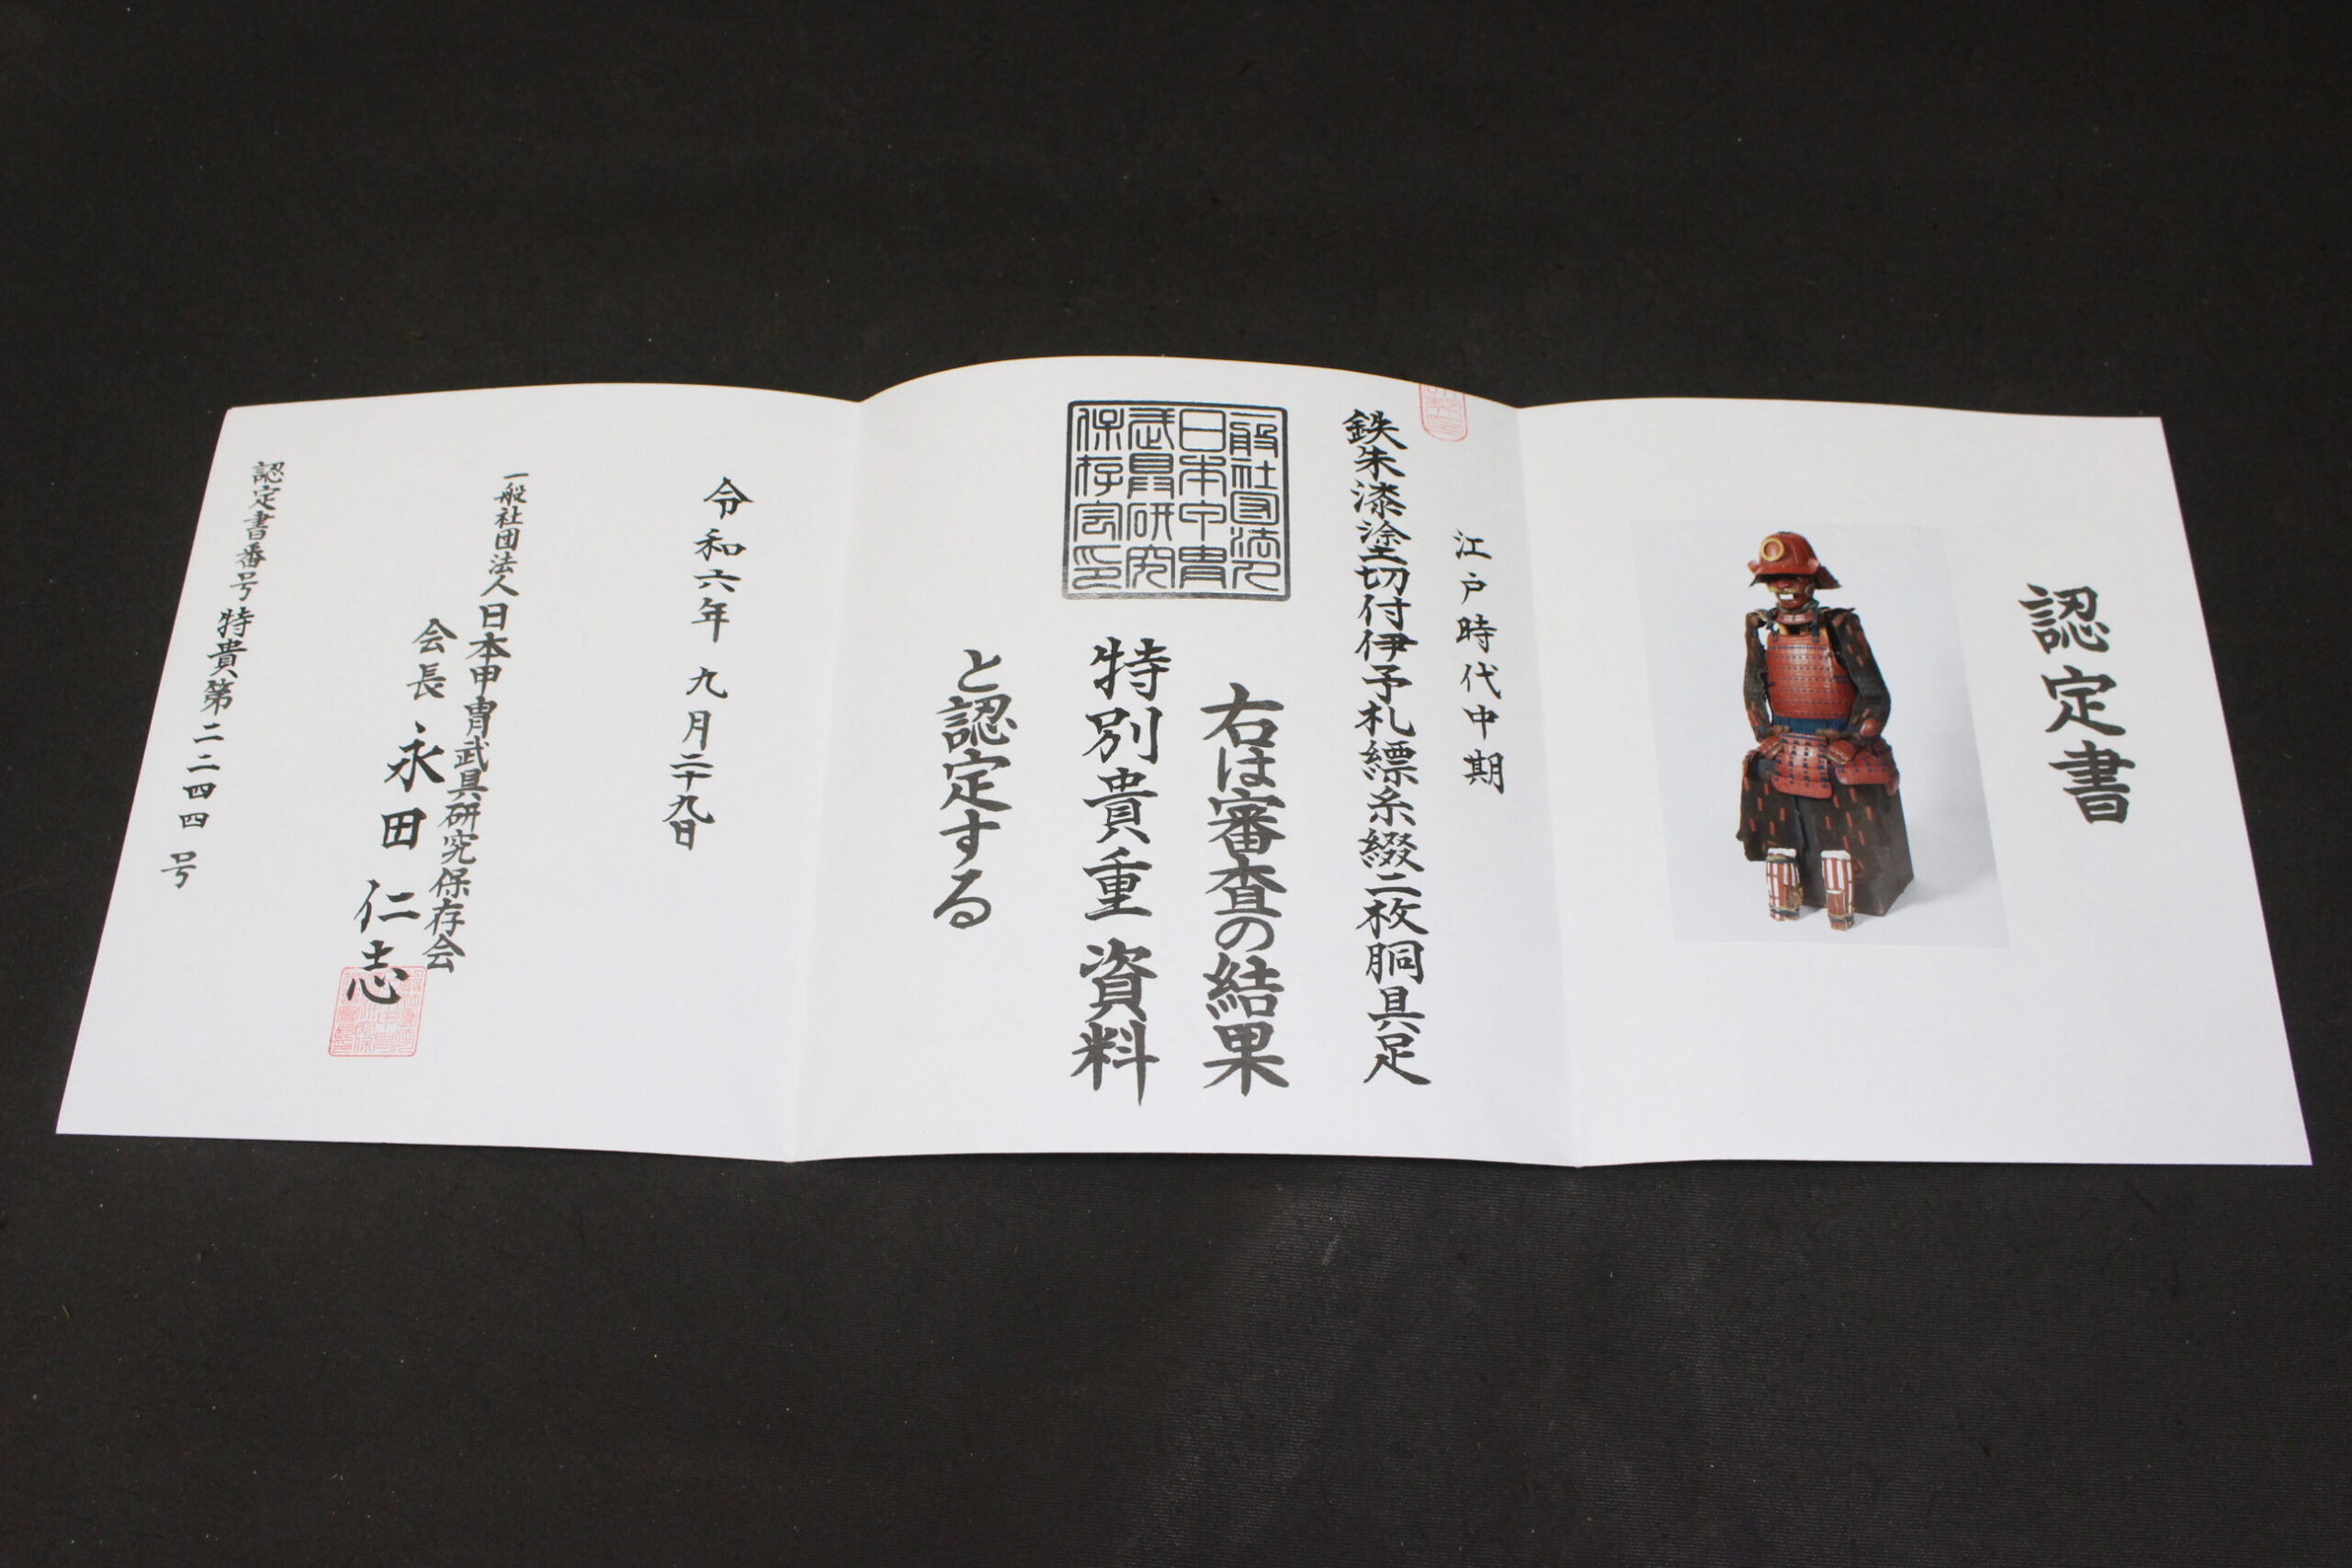 認定書
江戸時代中期
鉄朱漆塗切付伊予札縹糸綴二枚胴具足
一般社団法人
日本甲冑
武具研究
保存会印
右は審査の結果
特別貴重資料
と認定する
令和六年九月二十九日
一般社団法人日本甲冑武具研究保存会
会長 永田仁志
認定書番号 特貴第二二四四号